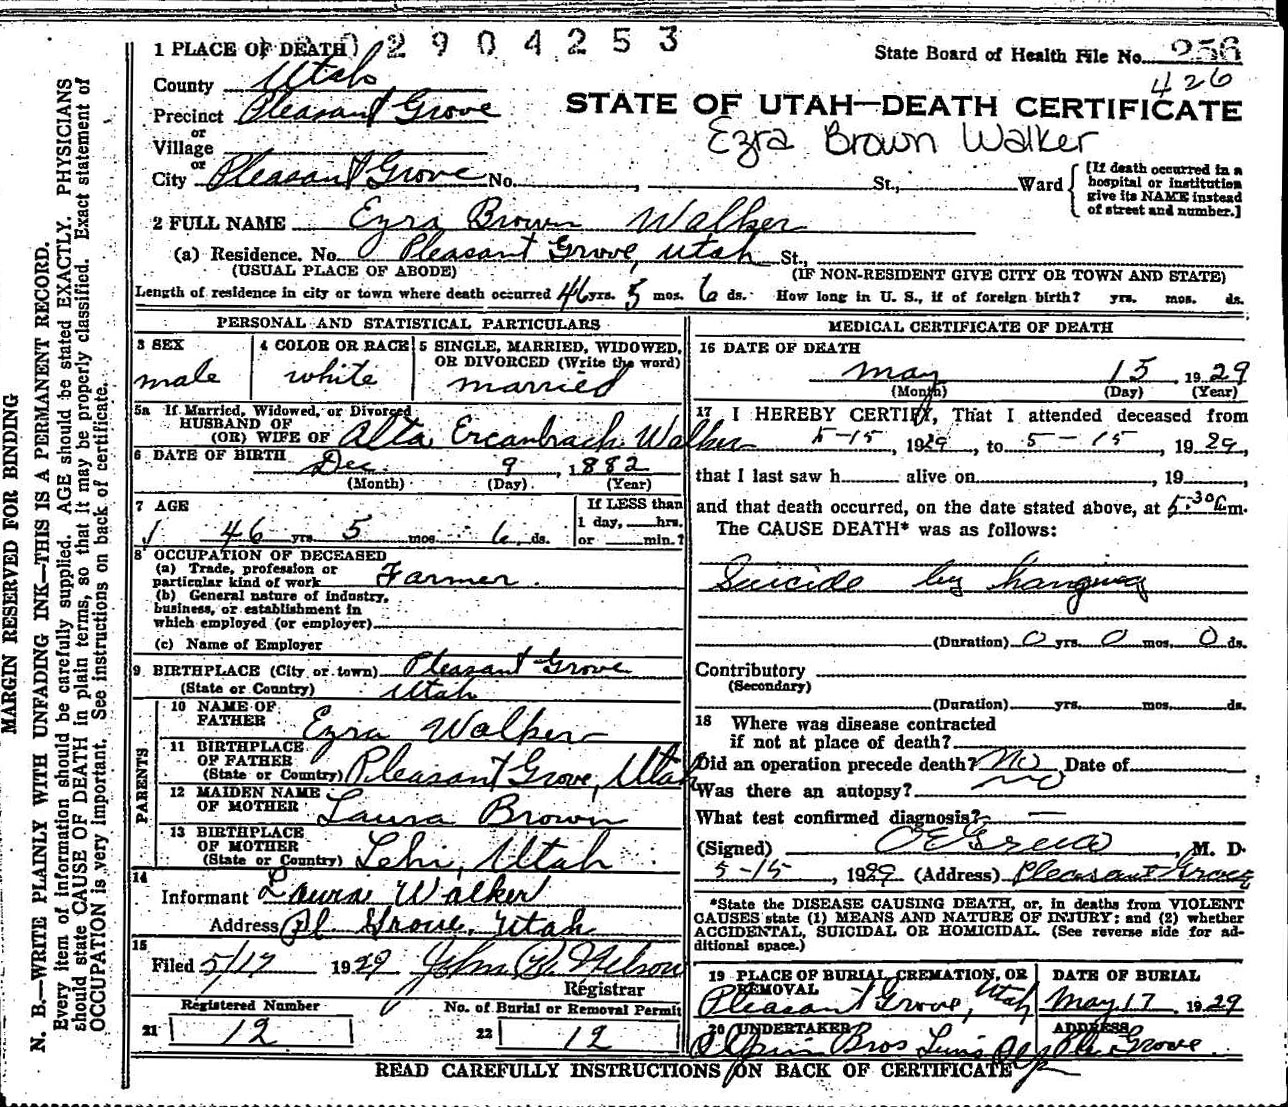 2904253
State Board of Health File No. 256
426
1 PLACE OF DEATH
County Utah
STATE OF UTAH—DEATH CERTIFICATE
Precinct Pleasant Grove
or
Ezra Brown Walker
Village
or
City Pleasant Grove No. , St., Ward
[If death occurred in a
hospital or institution
give its NAME instead
of street and number.]
2 FULL NAME Ezra Brown Walker
(a) Residence. No. Pleasant Grove, Utah St.,
(USUAL PLACE OF ABODE) (IF NON-RESIDENT GIVE CITY OR TOWN AND STATE)
Length of residence in city or town where death occurred 46 yrs. 5 mos. 6 ds. How long in U. S., if of foreign birth? yrs. mos. ds.
PERSONAL AND STATISTICAL PARTICULARS
3 SEX
male
4 COLOR OR RACE
white
5 SINGLE, MARRIED, WIDOWED,
OR DIVORCED (Write the word)
married
5a If Married, Widowed, or Divorced
HUSBAND OF
(OR) WIFE OF Alta Ercanbrach Walker
6 DATE OF BIRTH
Dec. 9, 1882
(Month) (Day) (Year)
7 AGE
46 yrs. 5 mos. 6 ds.
If LESS than
1 day, hrs.
or min.?
8 OCCUPATION OF DECEASED
(a) Trade, profession or
particular kind of work Farmer.
(b) General nature of industry,
business, or establishment in
which employed (or employer)
(c) Name of Employer
9 BIRTHPLACE (City or town) Pleasant Grove
(State or Country) Utah
PARENTS
10 NAME OF
FATHER Ezra Walker
11 BIRTHPLACE
OF FATHER
(State or Country) Pleasant Grove, Utah
12 MAIDEN NAME
OF MOTHER Laura Brown
13 BIRTHPLACE
OF MOTHER
(State or Country) Lehi, Utah
14
Informant Laura Walker
Address Pl. Grove, Utah
15
Filed 5/17 1929 John Nelson
Registrar
Registered Number
21 12
No. of Burial or Removal Permit
22 12
MEDICAL CERTIFICATE OF DEATH
16 DATE OF DEATH
May 15, 1929
(Month) (Day) (Year)
17 I HEREBY CERTIFY, That I attended deceased from
5-15, 1929, to 5-15, 1929,
that I last saw h alive on , 19 ,
and that death occurred, on the date stated above, at 5:30 m.
The CAUSE DEATH* was as follows:
Suicide by hanging
(Duration) 0 yrs. 0 mos. 0 ds.
Contributory
(Secondary)
(Duration) yrs. mos. ds.
18 Where was disease contracted
if not at place of death?
Did an operation precede death? No Date of
Was there an autopsy? no
What test confirmed diagnosis? —
(Signed) , M. D.
5-15, 1929 (Address) Pleasant Grove
*State the DISEASE CAUSING DEATH, or, in deaths from VIOLENT
CAUSES state (1) MEANS AND NATURE OF INJURY; and (2) whether
ACCIDENTAL, SUICIDAL OR HOMICIDAL. (See reverse side for ad-
ditional space.)
19 PLACE OF BURIAL, CREMATION, OR
REMOVAL
Pleasant Grove, Utah
DATE OF BURIAL
May 17 1929
20 UNDERTAKER
Bros
ADDRESS
Pl. Grove
READ CAREFULLY INSTRUCTIONS ON BACK OF CERTIFICATE
MARGIN RESERVED FOR BINDING
N. B.—WRITE PLAINLY WITH UNFADING INK—THIS IS A PERMANENT RECORD.
Every item of information should be carefully supplied. AGE should be stated EXACTLY. PHYSICIANS
should state CAUSE OF DEATH in plain terms, so that it may be properly classified. Exact statement of
OCCUPATION is very important. See instructions on back of certificate.